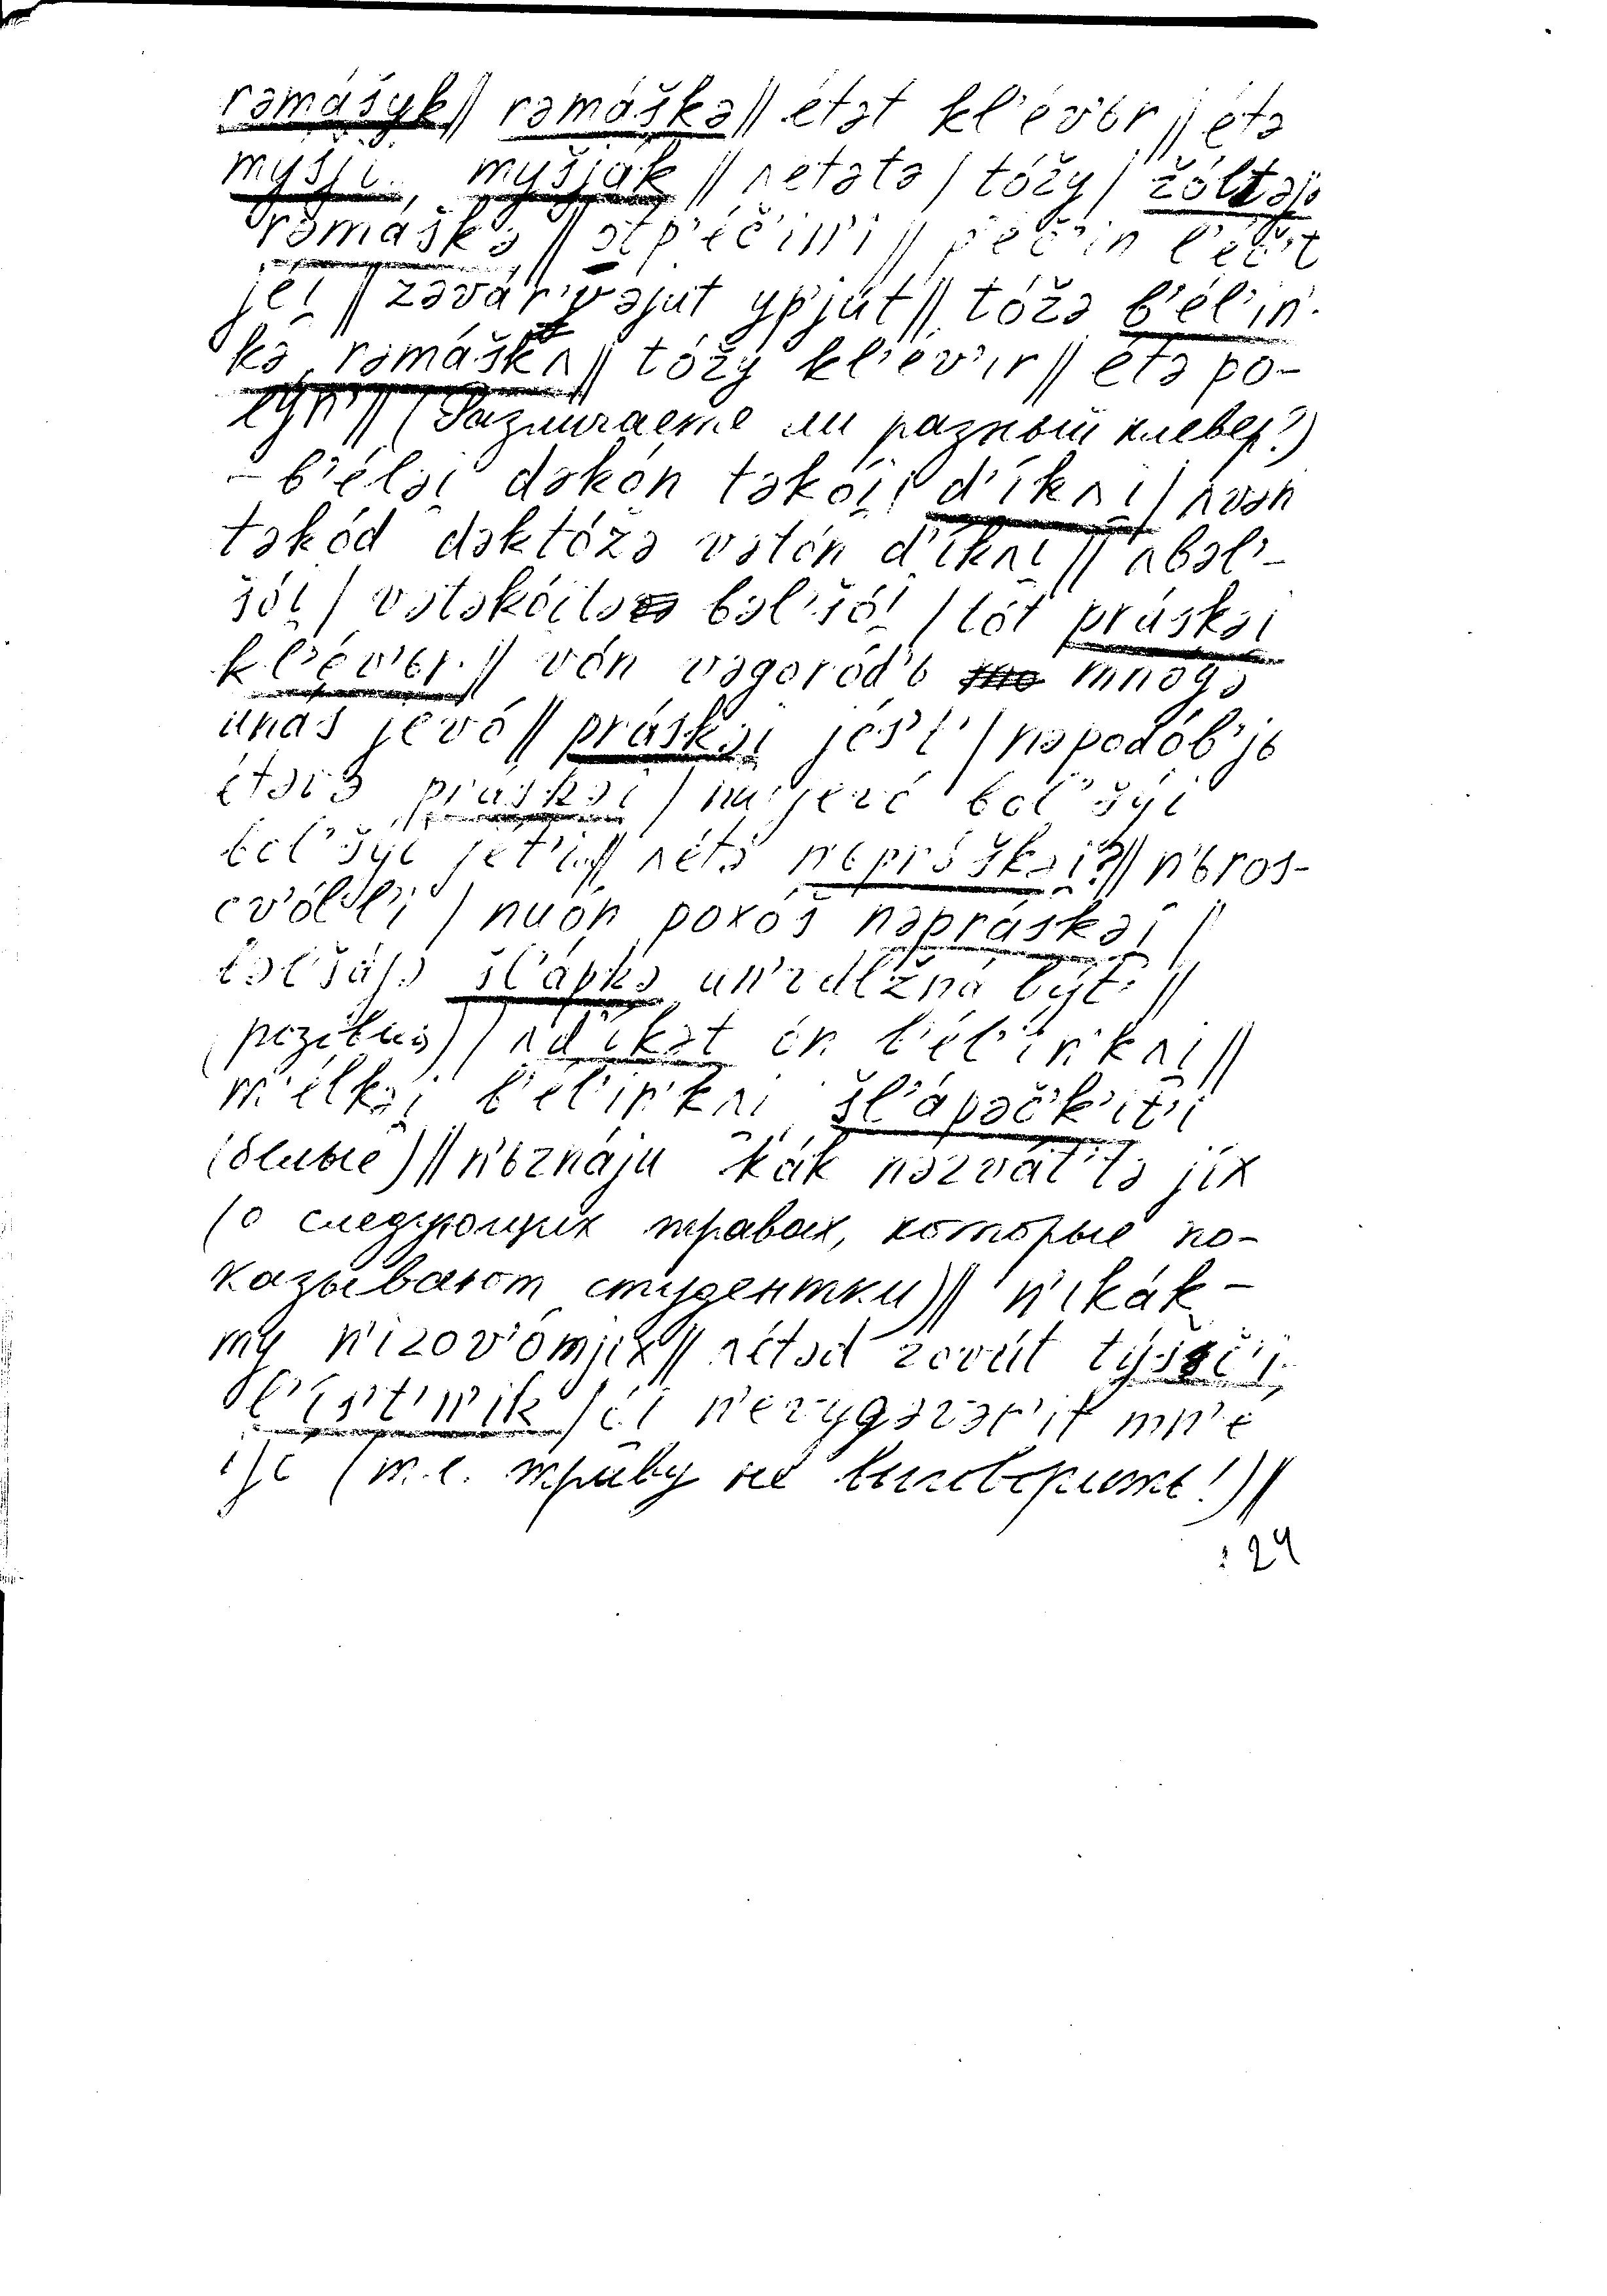 rəmášyk // rəmáškə // étət kl'év'ьr // étə
myšji, myšják // ʌétətə / tóžy / žóltəjə
rəmáškə // ətp'éč'in'i // p'éč'in l'éč'ut
jéi̯ // zəvár'vəjut ypjút // tóžə b'él'in'-
kə rəmáškʌ // tóžy kl'év'ir // étə po-
lýn' // (Различаете ли разный клевер?)
– b'éləi̯ dəkón təkói̯ / d'íkʌi̯ / ʌvən
təkód dəktóžə vətón d'íkʌi̯ // ʌbəl'-
šói̯ / vətəkói̯tə bəl'šói̯ / tót práskəi̯
kl'év'ьr // vón vəgoród'ь mnógə
unás jevó // práskəi̯ jés't' / nəpodób'jь
práskəi̯ / nu jevó ból'šyi
ból'šyi jét'i // ʌétə n'ьpróškəi̯? // n'ьros-
cvól'l'i / nuón poxóš nəpráskəi̯ /
bəl'šájə šl'ápkə un'vdlžná být' //
/ ʌd'íkət ón b'él'in'kʌi̯ //
m'élkəi̯ b'él'in'kʌi̯ šl'ápəčk'it'i
(белые) // n'ьznáju kák nəzvát'tə jíx
(о следующих травах, которые по-
казывают студентки) // n'ikák
my n'izov'ómjix // ʌétəd zovút týsič'i-
l'ís't'n'ik / éi̯ n'evýgəvər'it mn'é
ijé (т.е. траву не выговорить!) //
: 24